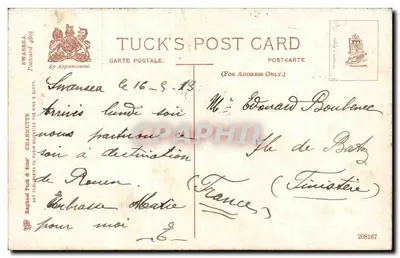 SWANSEA
Postcard 4803
By Appointment.
TUCK'S POST CARD
CARTE POSTALE.
POSTKARTE.
(FOR ADDRESS ONLY.)
Raphael Tuck & Sons' "CHARMETTE"
Swansea le 16-9-13
arrivés lundi soir
nous partirons ce
soir à destination
de Rouen.
Embrasse Marie
pour moi
E
Mr Edouard
Ile de Batz
(Finistère)
(France)
208167